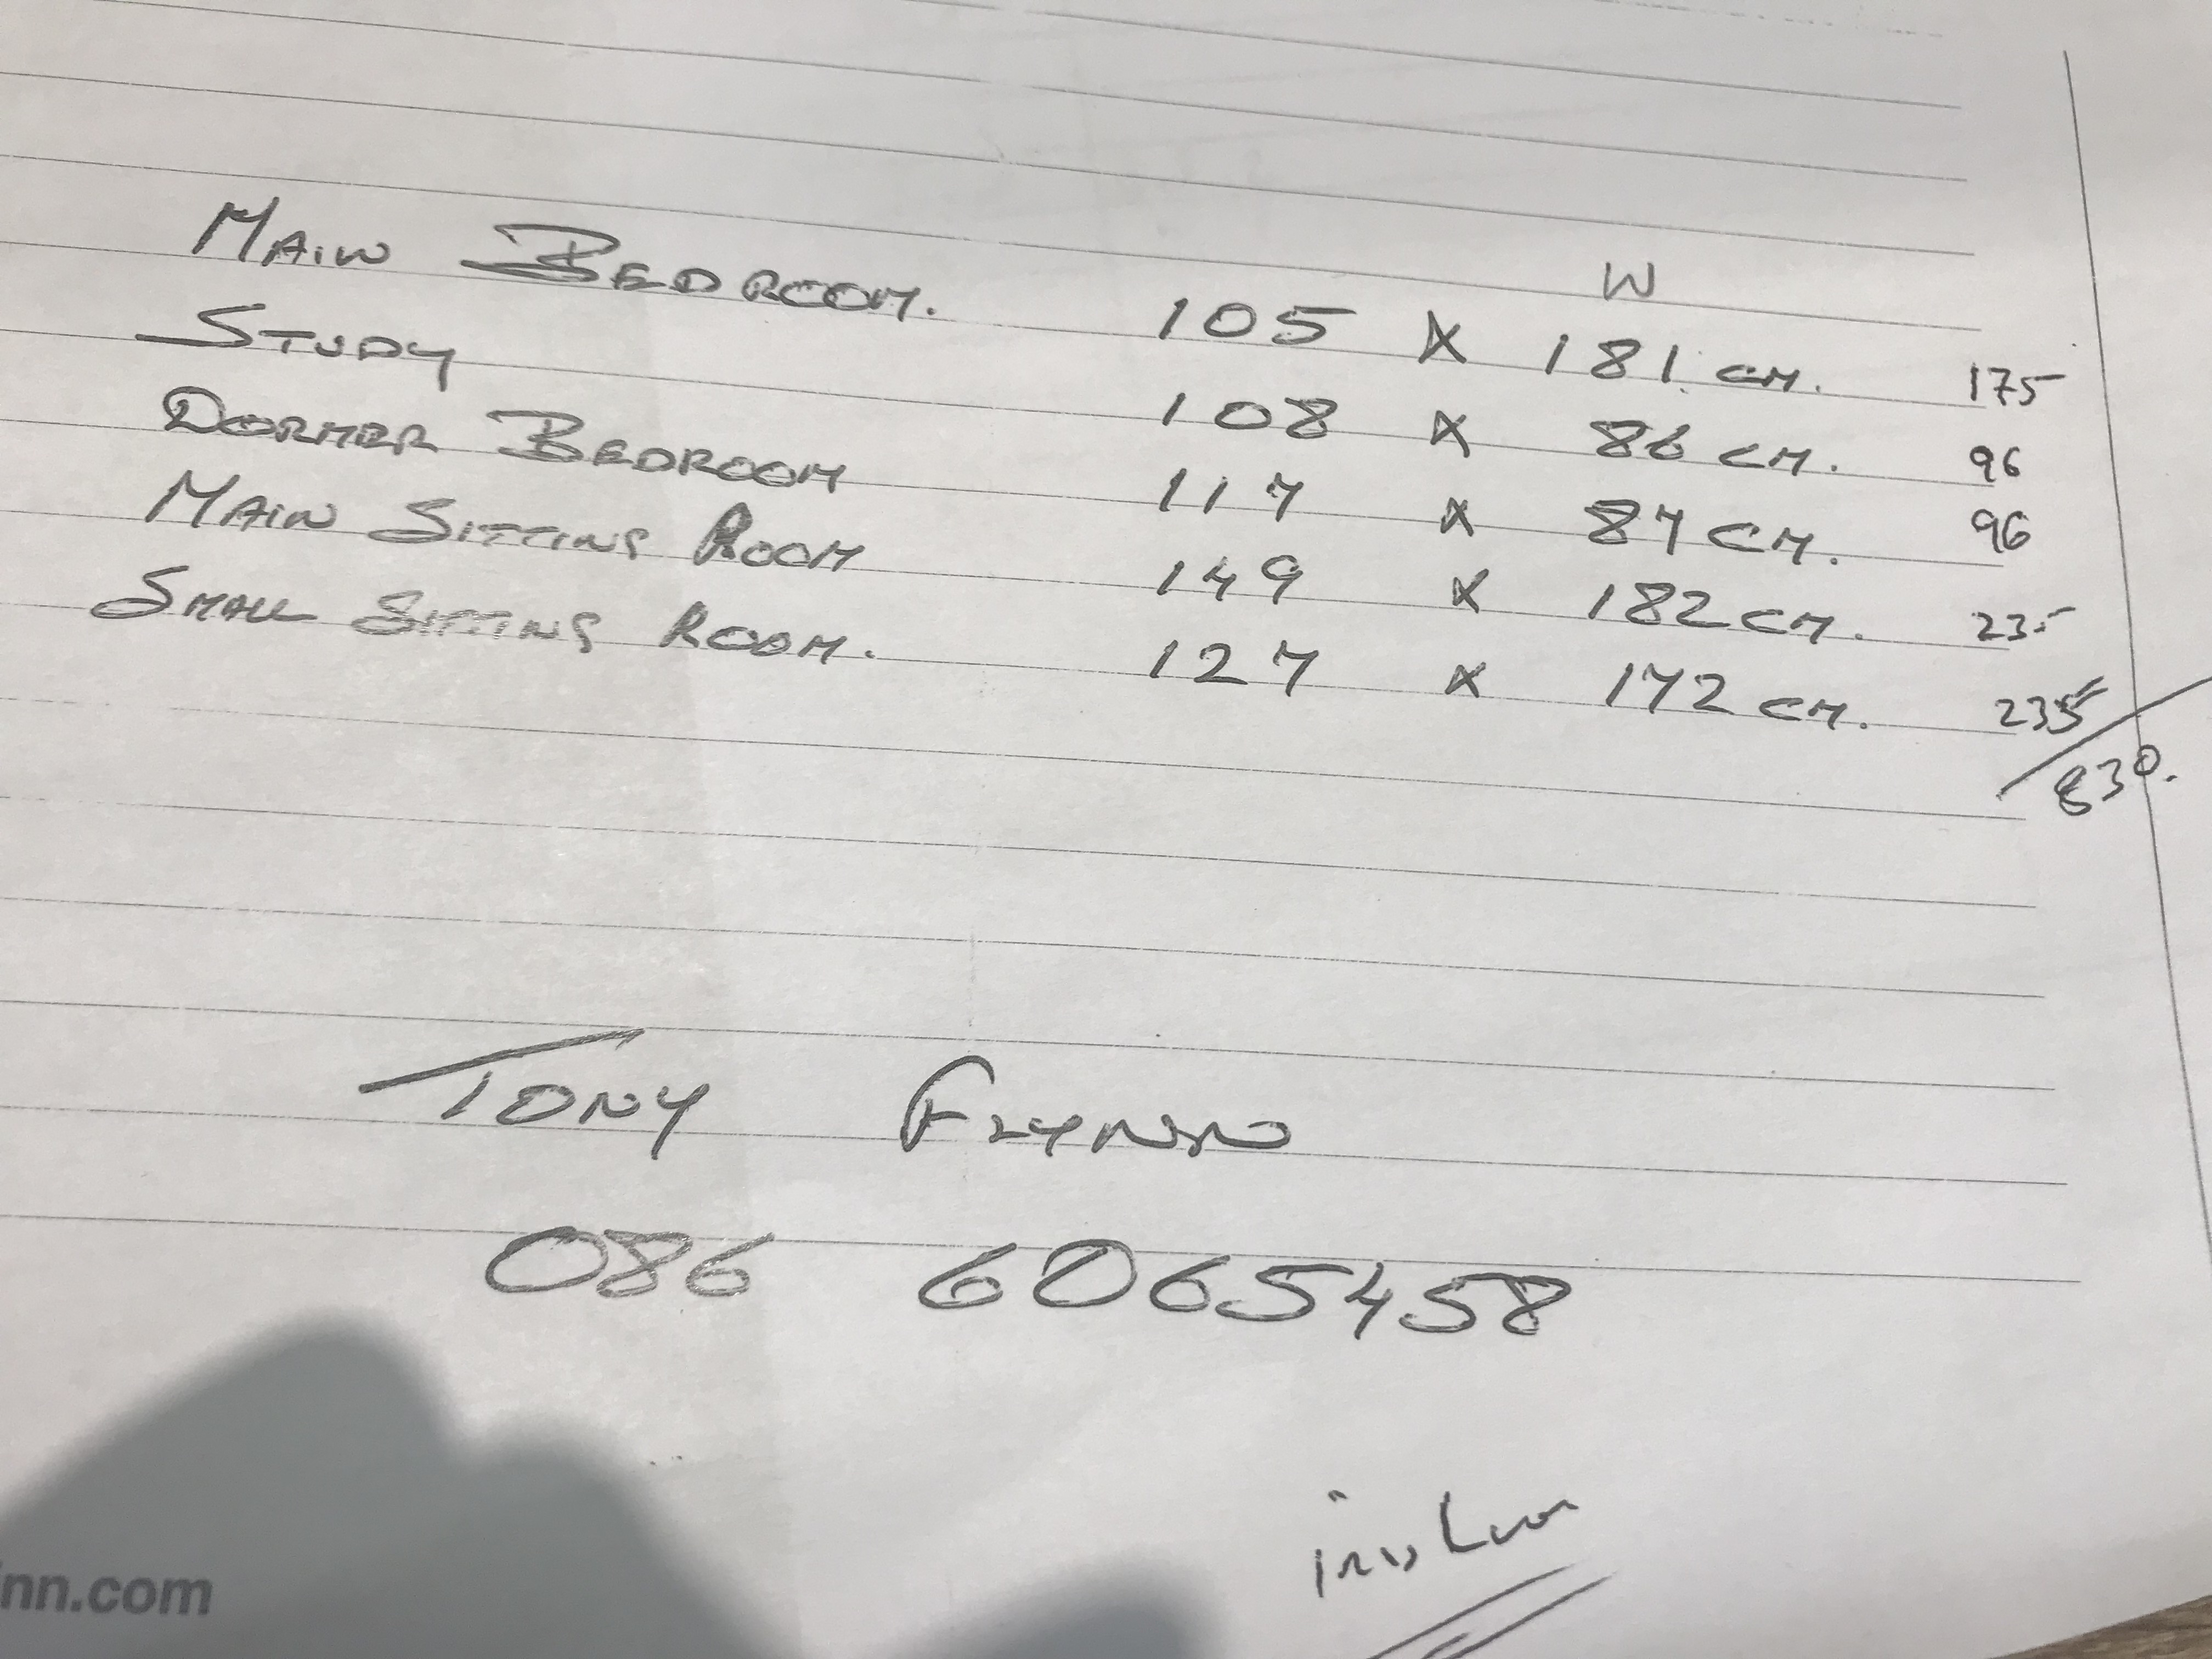 W
MAIN BEDROOM. 105 X 181 CM. 175
STUDY 108 X 86 CM. 96
DORMER BEDROOM 117 X 87 CM. 96
MAIN SITTING ROOM 149 X 182 CM. 235
SMALL SITTING ROOM. 127 X 172 CM. 235
830.
TONY FLYNN
086 6065458
nn.com